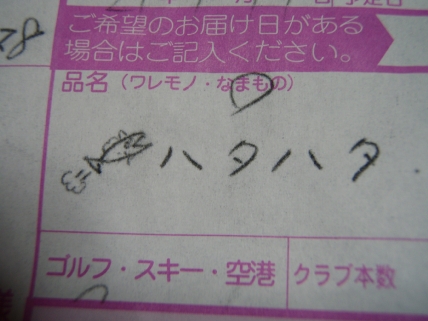 28
ご希望のお届け日がある
場合はご記入ください。
品名(ワレモノ・なまもの)
ハタハタ
ゴルフ・スキー・空港
クラブ本数